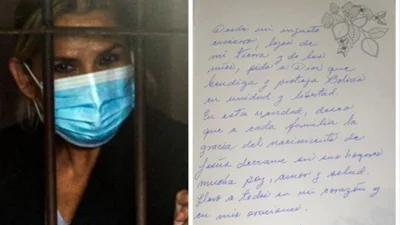 Desde mi injusto
encierro, lejos de
mi tierra y de los
míos, pido a Dios que
bendiga y proteja Bolivia
en unidad y libertad.
En esta navidad, deseo
que a cada familia la
gracia del nacimiento de
Jesús derrame en sus hogares
mucha paz, amor y salud.
Llevo a todos en mi corazón y
en mis oraciones.